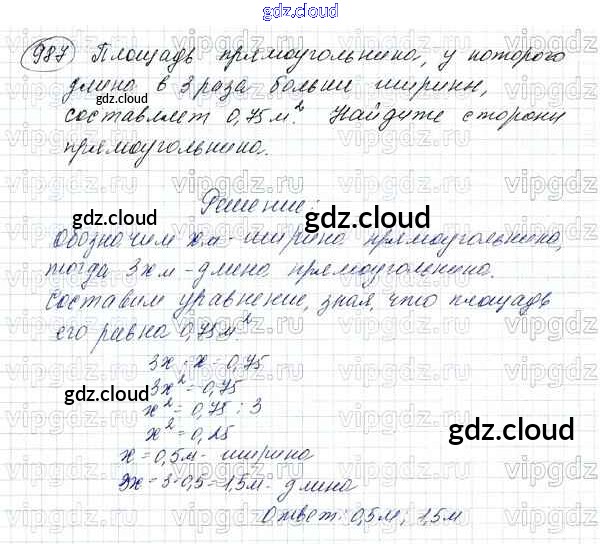 gdz.cloud
987 Площадь прямоугольника, у которого
длина в 3 раза больше ширины,
составляет 0,75 м². Найдите стороны
прямоугольника.
Решение:
gdz.cloud
gdz.cloud
Обозначим x м - ширина прямоугольника,
тогда 3x м - длина прямоугольника.
Составим уравнение, зная, что площадь
его равна 0,75 м²
3x · x = 0,75
3x² = 0,75
gdz.cloud
x² = 0,75 : 3
x² = 0,25
gdz.cloud
x = 0,5 м - ширина
3x = 3·0,5 = 1,5 м - длина
Ответ: 0,5 м; 1,5 м